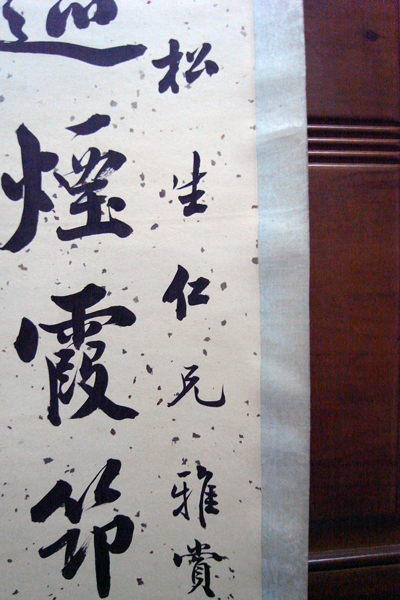 松生仁兄雅賞
煙霞